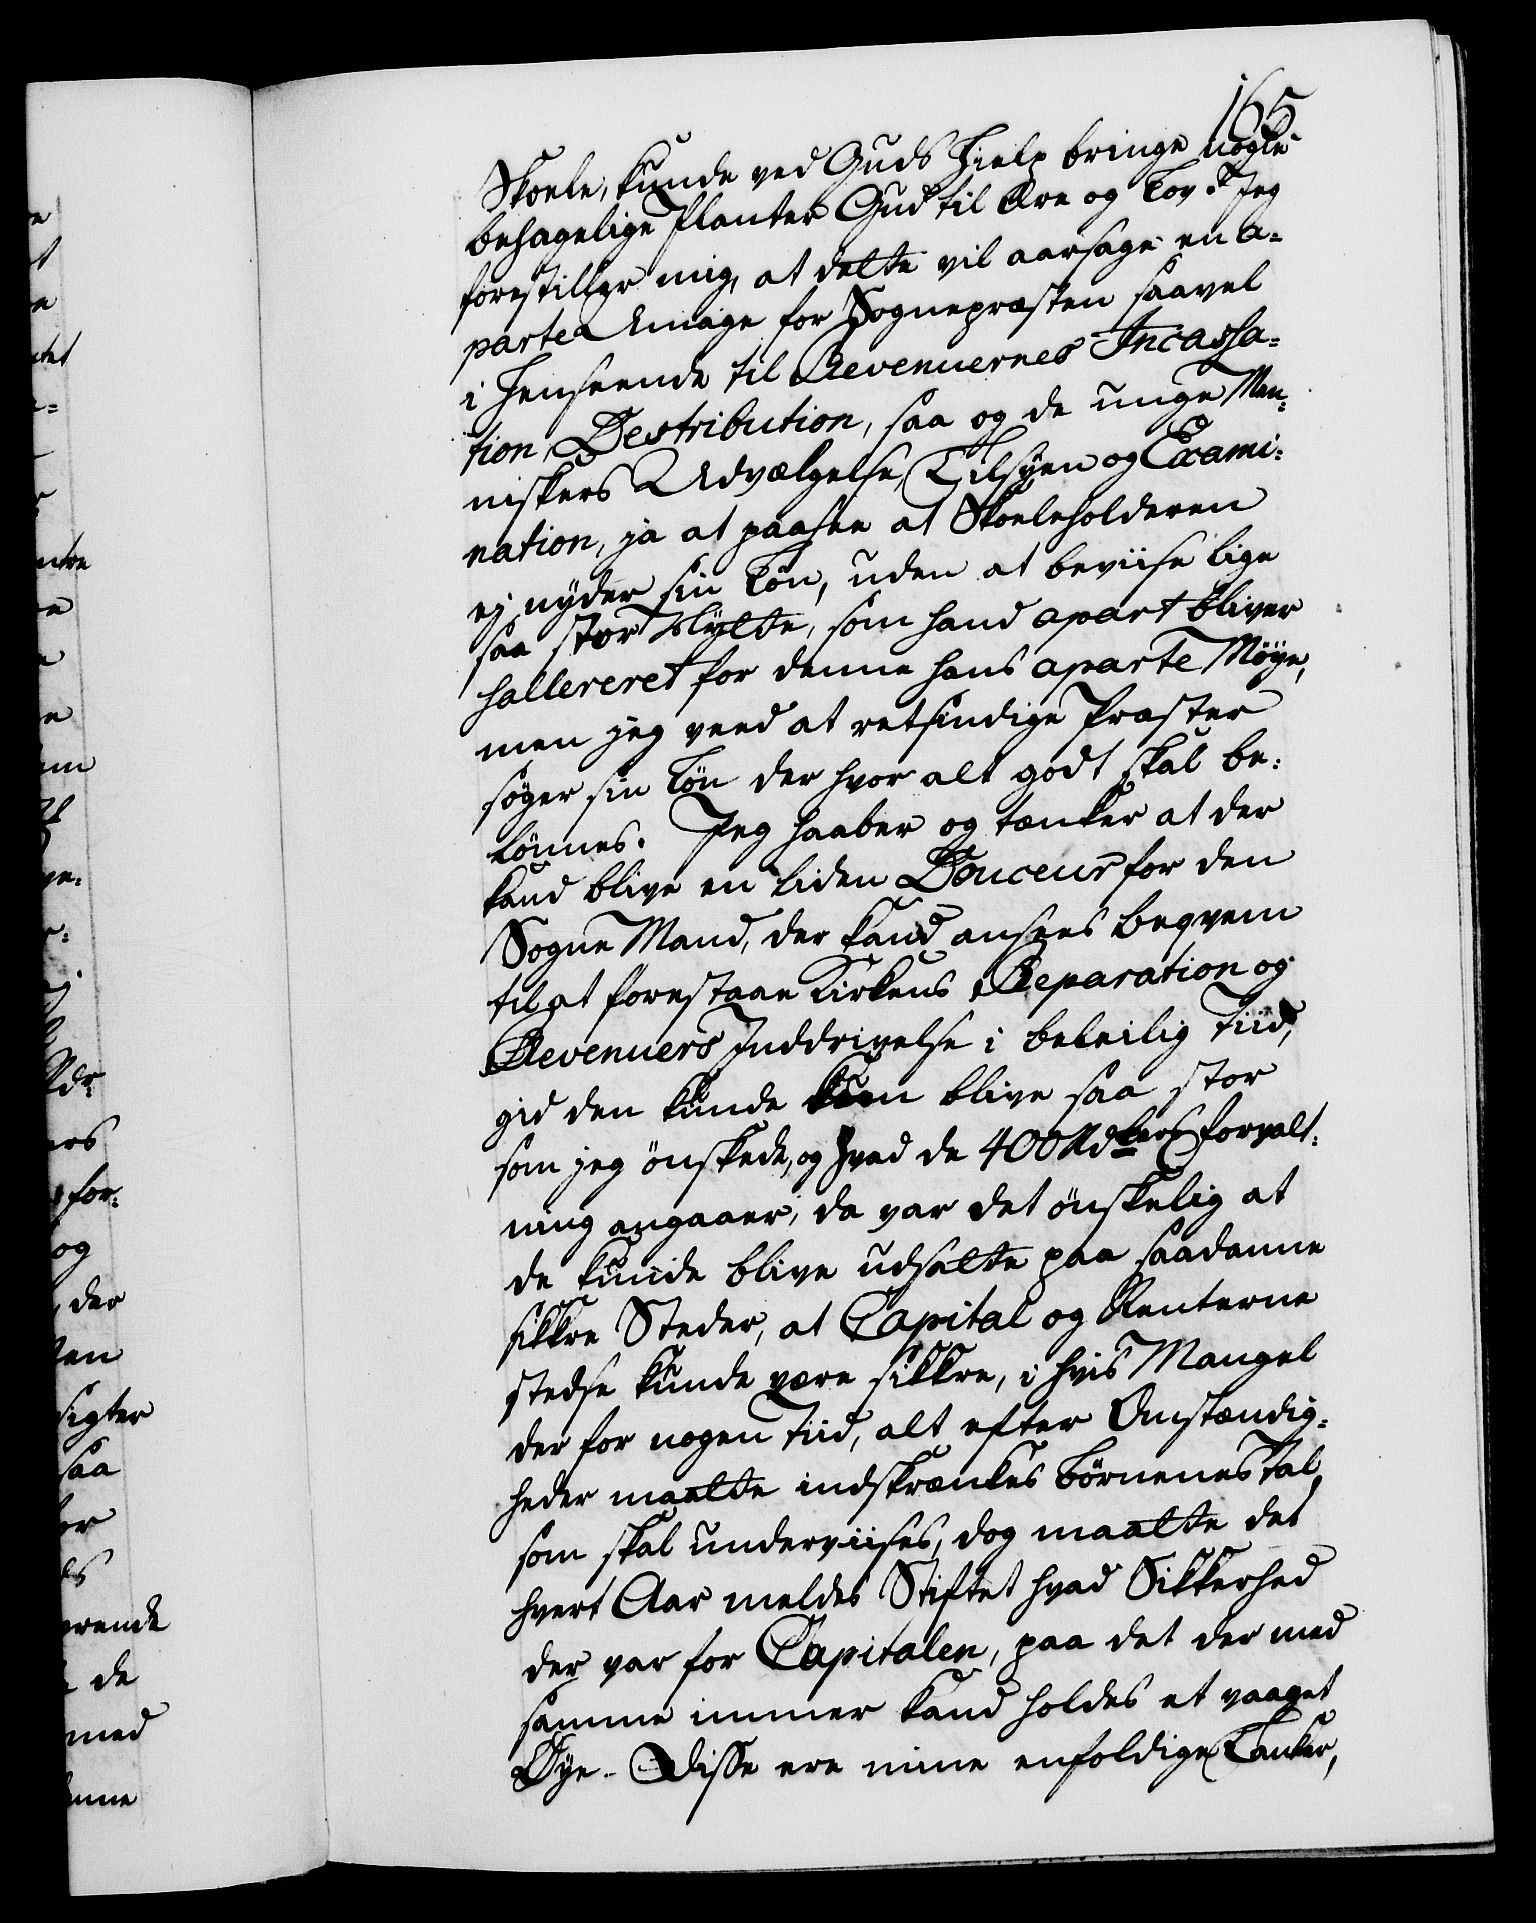 165
Skoele, kunde ved Guds Hielp bringe nogle
behagelige Planter Gud til Ære og Lov. Jeg
forestiller mig, at dette vil aarsage en a-
parte Umage for Sognepræsten saavel
i Henseende til Revenuernes Incassa-
tion, Destribution, saa og de unge Men-
niskers Udvælgelse, Tilsyen og Exami-
nation, ja at paasee at Skoeleholderen
ej nyder sin Løn, uden at beviise lige
saa stor Nytte, som hand apart bliver
sallereret for denne hans aparte Møye,
men jeg veed at retsindige Præster
søger sin Løn der hvor alt godt skal be-
lønnes. Jeg haaber og tænker at der
kand blive en liden Douceur for den
Sogne Mand, der kand ansees beqvem
til at forestaae Kirkens Reparation og
Revenuers Inddrivelse i beleilig Tiid,
gid den kunde kun blive saa stor
som jeg ønskede, og hvad de 400 Rdlers Forvalt-
ning angaaer, da var det ønskelig at
de kunde blive udsatte paa saadanne
sikkre Steder, at Capital og Renterne
stedse kunde være sikkre, i hvis Mangel
der for nogen Tiid, alt efter Omstændig-
heder maatte indskrænkes Børnenes Tal
som skal underviises, dog maatte det
hvert Aar meldes Stiftet hvad Sikkerhed
der var for Capitalen, paa det der med
samme immer kand holdes et vaaget
Øye. Disse ere mine enfoldige Tanker,